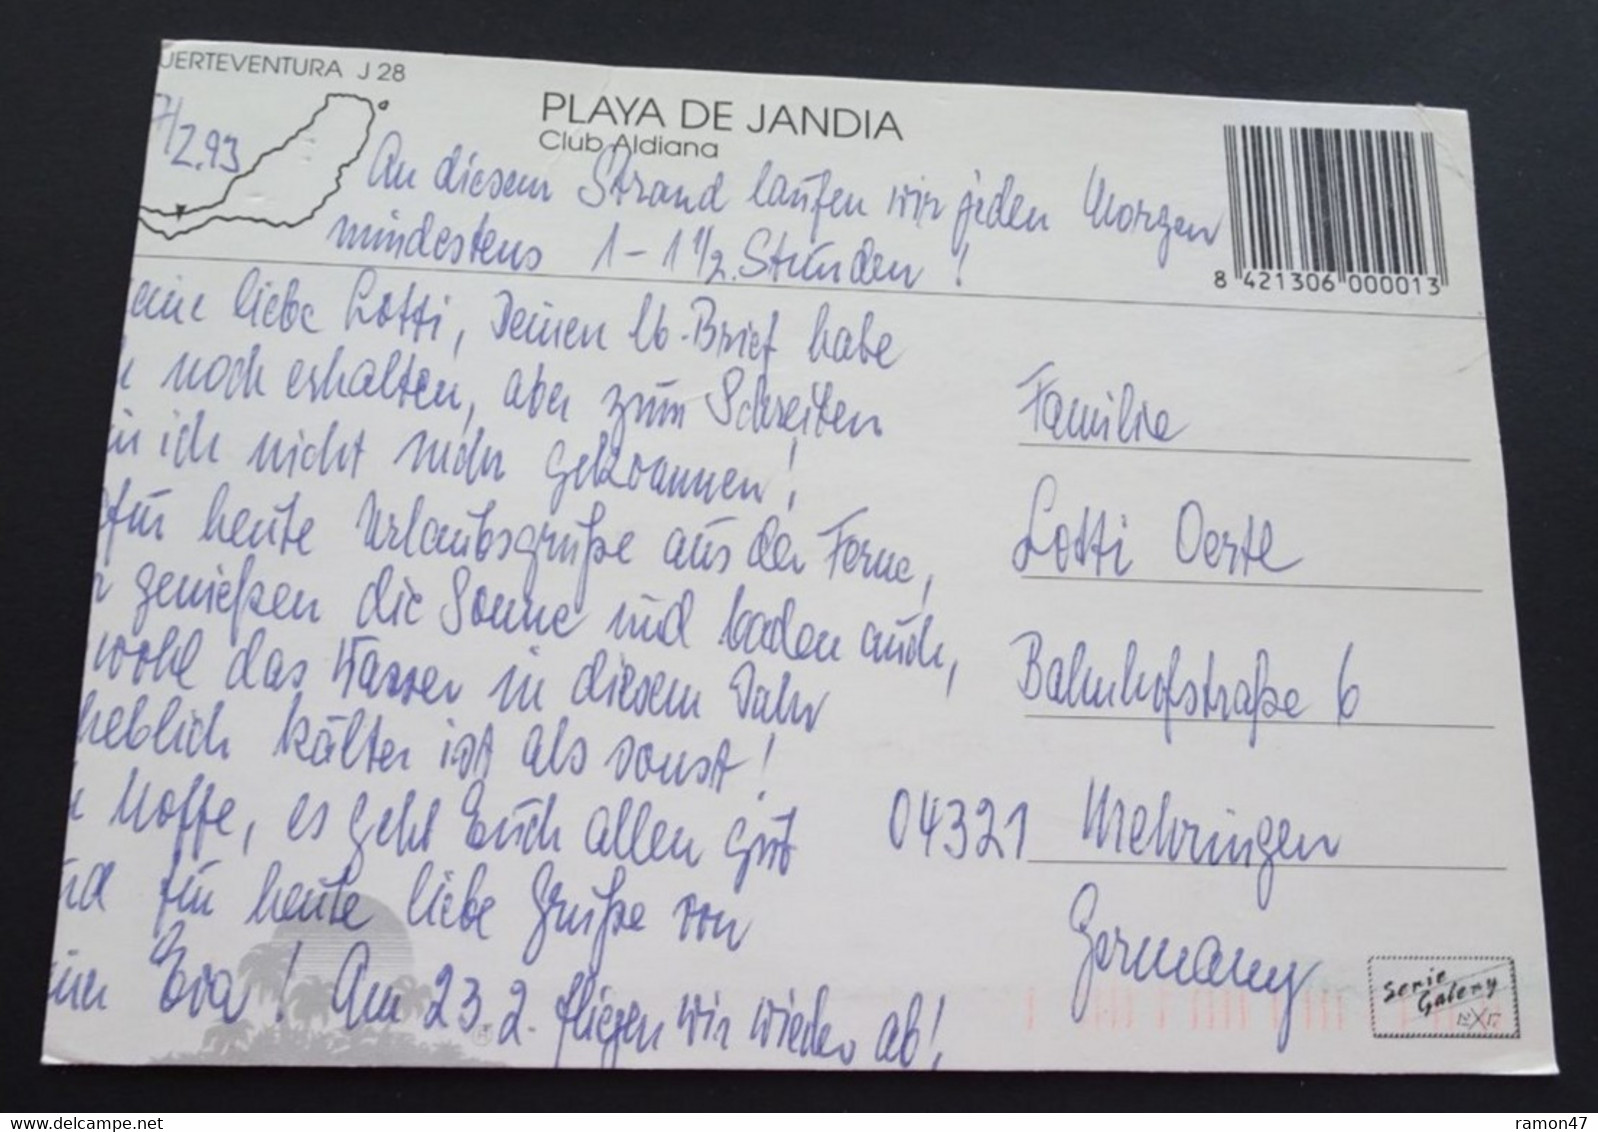 UERTEVENTURA J 28
PLAYA DE JANDIA
Club Aldiana
7/2.93
An diesem Strand laufen wir jeden Morgen
mindestens 1 - 1 1/2 Stunden!
8 421306 000013
eine liebe Lotti, Deinen lb. Brief habe
h noch erhalten, aber zum Schreiben
in ich nicht mehr gekommen!
für heute Urlaubsgrüße aus der Ferne,
r genießen die Sonne und baden auch,
wohl das Wasser in diesem Jahr
heblich kälter ist als sonst!
h hoffe, es geht Euch allen gut
nd für heute liebe Grüße von
Eva! Am 23.2. fliegen wir wieder ab!
Familie
Lotti Oerte
Bahnhofstraße 6
04321 Mehringen
Germany
Serie
Galery
ramon47